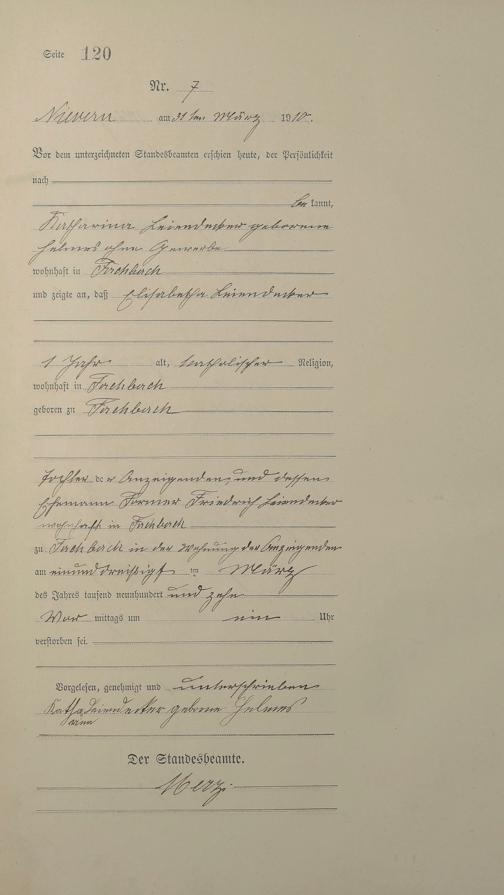 Seite 120
Nr. 7
Nievern am 31ten März 1910.
Vor dem unterzeichneten Standesbeamten erschien heute, der Persönlichkeit
nach
be kannt,
Katharina Leiendecker geborene
Helmes ohne Gewerbe
wohnhaft in Fachbach
und zeigte an, daß Elisabetha Leiendecker
1 Jahr alt, katholischer Religion,
wohnhaft in Fachbach
geboren zu Fachbach
Tochter der Anzeigenden, und dessen
Ehemann Former Friedrich Leiendecker
wohnhaft in Fachbach
zu Fachbach in der Wohnung der Anzeigenden
am einunddreißigsten März
des Jahres tausend neunhundert und zehn
Vor mittags um ein Uhr
verstorben sei.
Vorgelesen, genehmigt und unterschrieben
Katharina Leiendecker geborne Helmes
Der Standesbeamte.
Merz.